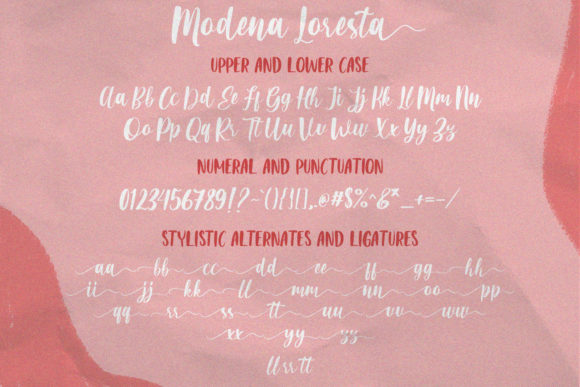 Modena Loresta
UPPER AND LOWER CASE
Aa Bb Cc Dd Ee Ff Gg Hh Ii Jj Kk Ll Mm Nn
Oo Pp Qq Rr Tt Uu Vv Ww Xx Yy Zz
NUMERAL AND PUNCTUATION
0123456789!?~`(){}[],.@#$%^&*_+=-/
STYLISTIC ALTERNATES AND LIGATURES
aa bb cc dd ee ff gg hh
ii jj kk ll mm nn oo pp
qq rr ss tt uu vv ww
xx yy zz
ll ss tt